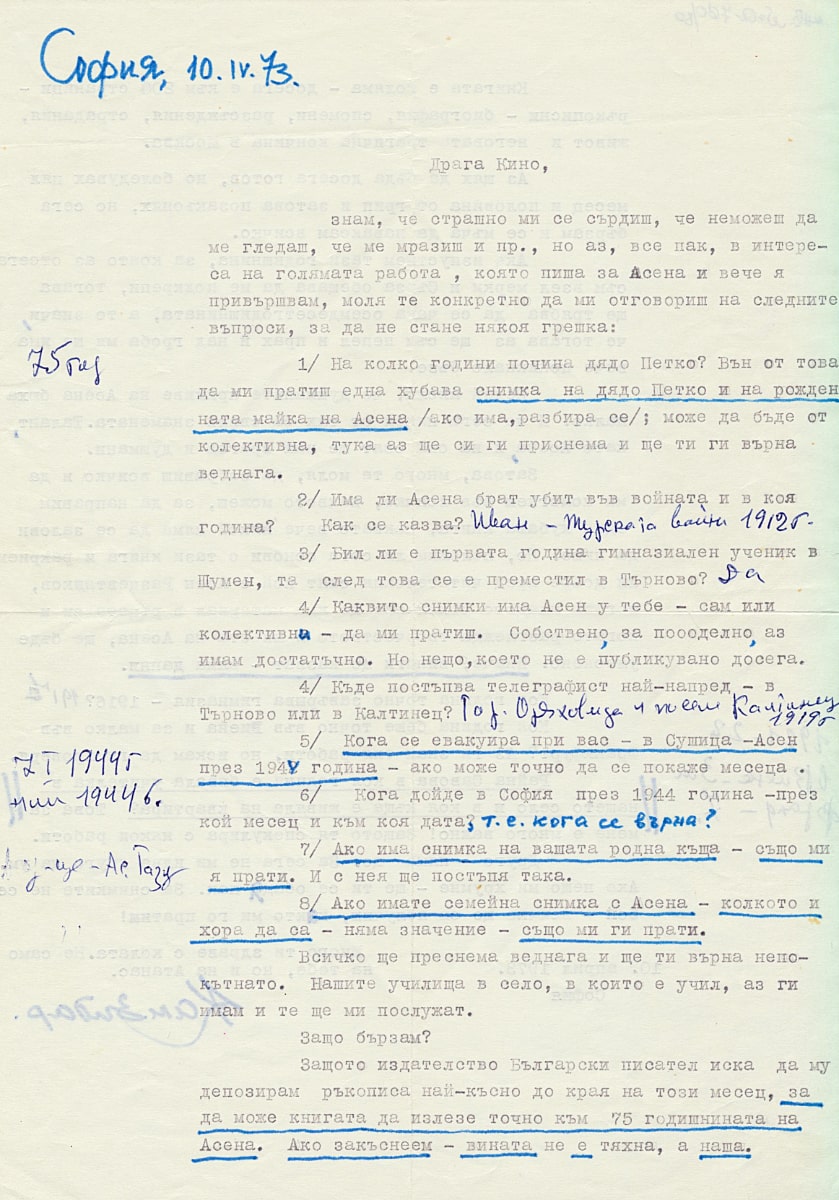 София, 10.IV.73.
Драга Кино,
знам, че страшно ми се сърдиш, че неможеш да
ме гледаш, че ме мразиш и пр., но аз, все пак, в интере-
са на голямата работа , която пиша за Асена и вече я
привършвам, моля те конкретно да ми отговориш на следните
въпроси, за да не стане някоя грешка:
75 год
1/ На колко години почина дядо Петко? Вън от това
да ми пратиш една хубава снимка на дядо Петко и на рожден
ната майка на Асена /ако има,разбира се/; може да бъде от
колективна, тука аз ще си ги приснема и ще ти ги върна
веднага.
2/ Има ли Асена брат убит във войната и в коя
година? Как се казва? Иван - Турската война 1912г.
3/ Бил ли е първата година гимназиален ученик в
Шумен, та след това се е преместил в Търново? Да
4/ Каквито снимки има Асен у тебе - сам или
колективни - да ми пратиш. Собствено, за поооделно, аз
имам достатъчно. Но нещо,което не е публикувано досега.
4/ Къде постъпва телеграфист най-напред - в
Търново или в Калтинец? Гор. Оряховица и после Калтинец
1919г
5/ Кога се евакуира при вас - в Сушица -Асен
през 194 година - ако може точно да се покаже месеца .
7 I 1944г
1944г.
6/ Кога дойде в София през 1944 година -през
кой месец и към коя дата?, т.е. кога се върна?
7/ Ако има снимка на вашата родна къща - също ми
я прати. И с нея ще постъпя така.
8/ Ако имате семейна снимка с Асена - колкото и
хора да са - няма значение - също ми ги прати.
Всичко ще преснема веднага и ще ти върна непо-
кътнато. Нашите училища в село, в които е учил, аз ги
имам и те ще ми послужат.
Защо бързам?
Защото издателство Български писател иска да му
депозирам ръкописа най-късно до края на този месец, за
да може книгата да излезе точно към 75 годишнината на
Асена. Ако закъснеем - вината не е тяхна, а наша.